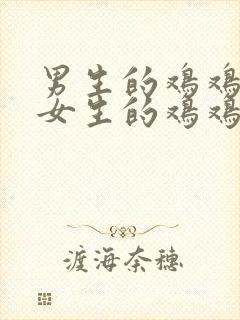 男生的鸡鸡
女生的鸡鸡
渡海奈穗